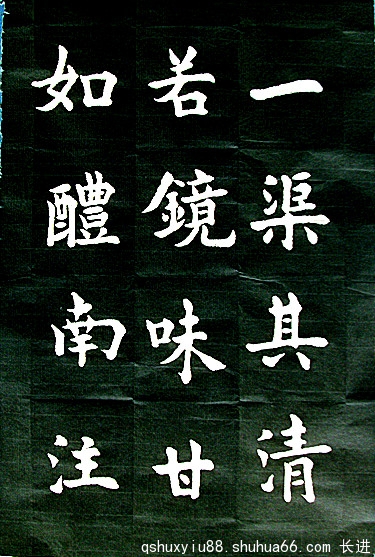 一渠其清
若鏡味甘
如醴南注
qshuxyiu88.shuhua66.com 长进